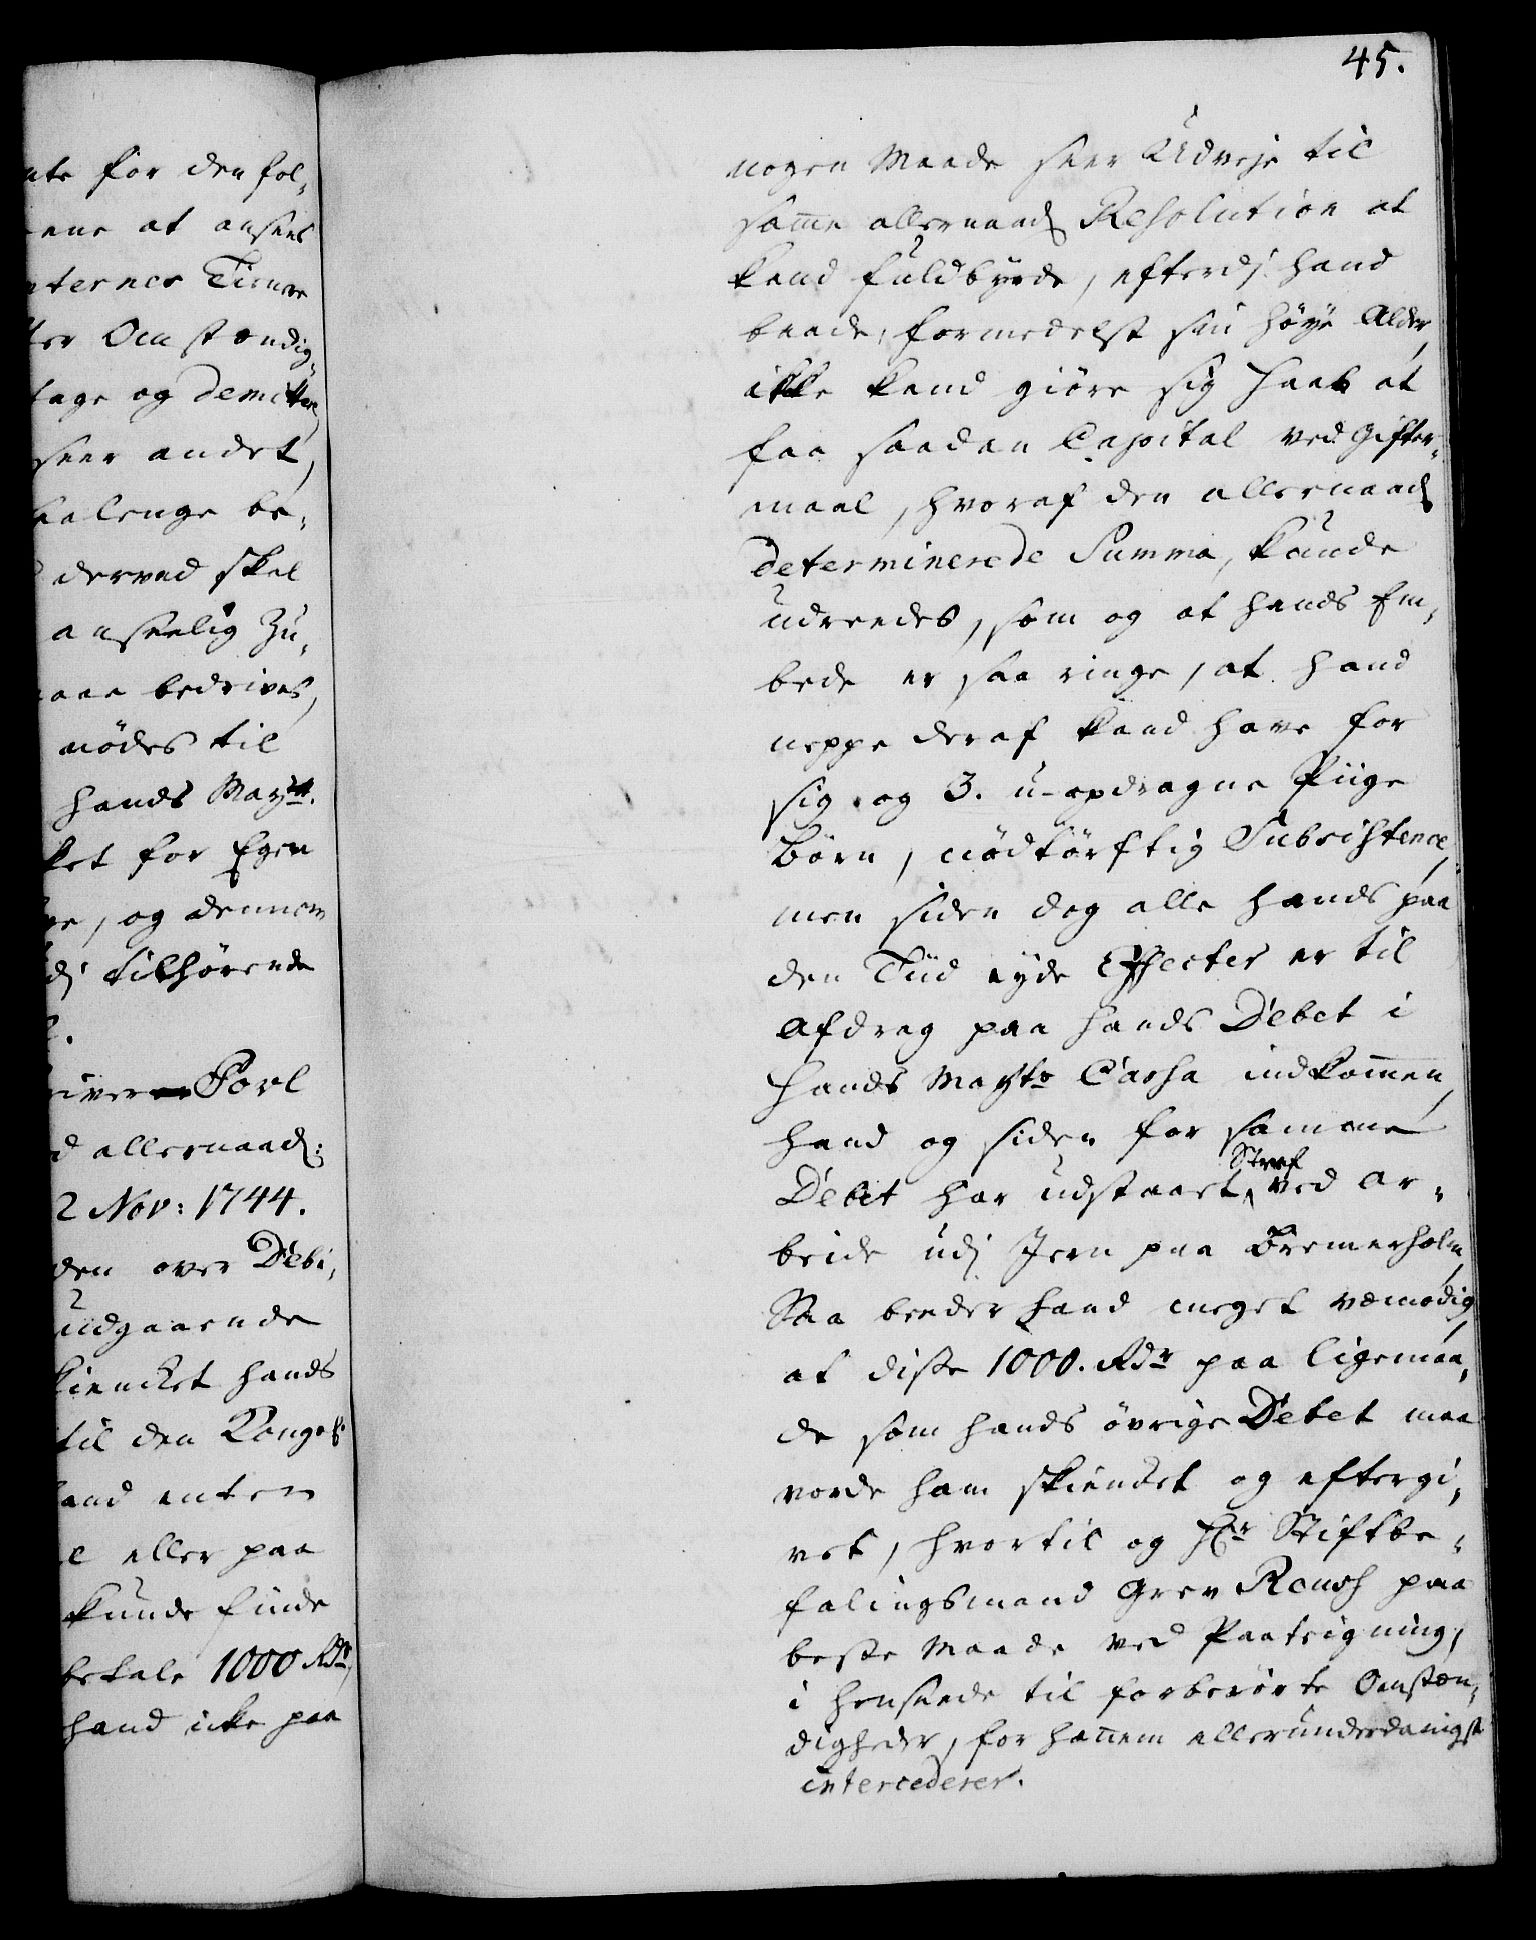 nte for den fol-
ene at ansees
nternes Tienere
ter Omstændig-
tage og demittere
seer andet,
saalenge be-
derved skal
anseelig Zu-
bedrives,
nødes til
hands Mayst.
ket for Egen
, og dennem
dj tilhørende
river Povl
d allernaad:
2 Nov: 1744.
den over Debi-
udgaaende
skiencket hands
til den Kongel:
hand enten
l eller paa
kunde finde
betale 1000 Rdr,
hand icke paa
45.
nogen Maade seer Udveje til
samme allernaad: Resolution at
kand fuldbyrde, efterdj hand
baade, formedelst sin høye Alder,
ikke kand giøre sig Haab at
faa saadan Capital ved Gifter-
maal, hvoraf den allernaad:
determinerede Summa, kunde
udreedes, som og at hands Em-
bede er saa ringe, at hand
neppe deraf kand have for
sig og 3. u-opdragne Piige
Børn, nødtørftig Subsistence,
men siden dog alle hands paa
den Tiid eyde Effecter er til
Afdrag paa hands Debet i
Hands Maysts Cassa indkommen,
hand og siden for samme
Debet har udstaaet Straf ved Ar-
beide udj Jern paa Bremerholm,
Saa beeder hand meget vemodig,
at disse 1000. Rdr paa ligemaa-
de som hands øvrige Debet maa
vorde ham skiencket og eftergi-
vet, hvortil og Hr Stiftbe-
falingsmand Grev Rantzau paa
beste Maade ved Paategning,
i henseende til forberørte Omstæn-
digheder, for hannem allerunderdanigst
intercederer.